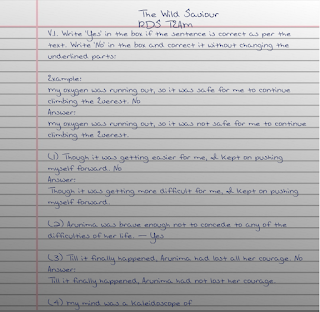 The Wild Saviour
RDS TEAM
V.1. Write 'Yes' in the box if the sentence is correct as per the
text. Write 'No' in the box and correct it without changing the
underlined parts:
Example:
My oxygen was running out, so it was safe for me to continue
climbing the Everest. No
Answer:
My oxygen was running out, so it was not safe for me to continue
climbing the Everest.
(1) Though it was getting easier for me, I kept on pushing
myself forward. No
Answer:
Though it was getting more difficult for me, I kept on pushing
myself forward.
(2) Arunima was brave enough not to concede to any of the
difficulties of her life. — Yes
(3) Till it finally happened, Arunima had lost all her courage. No
Answer:
Till it finally happened, Arunima had not lost her courage.
(4) My mind was a kaleidoscope of